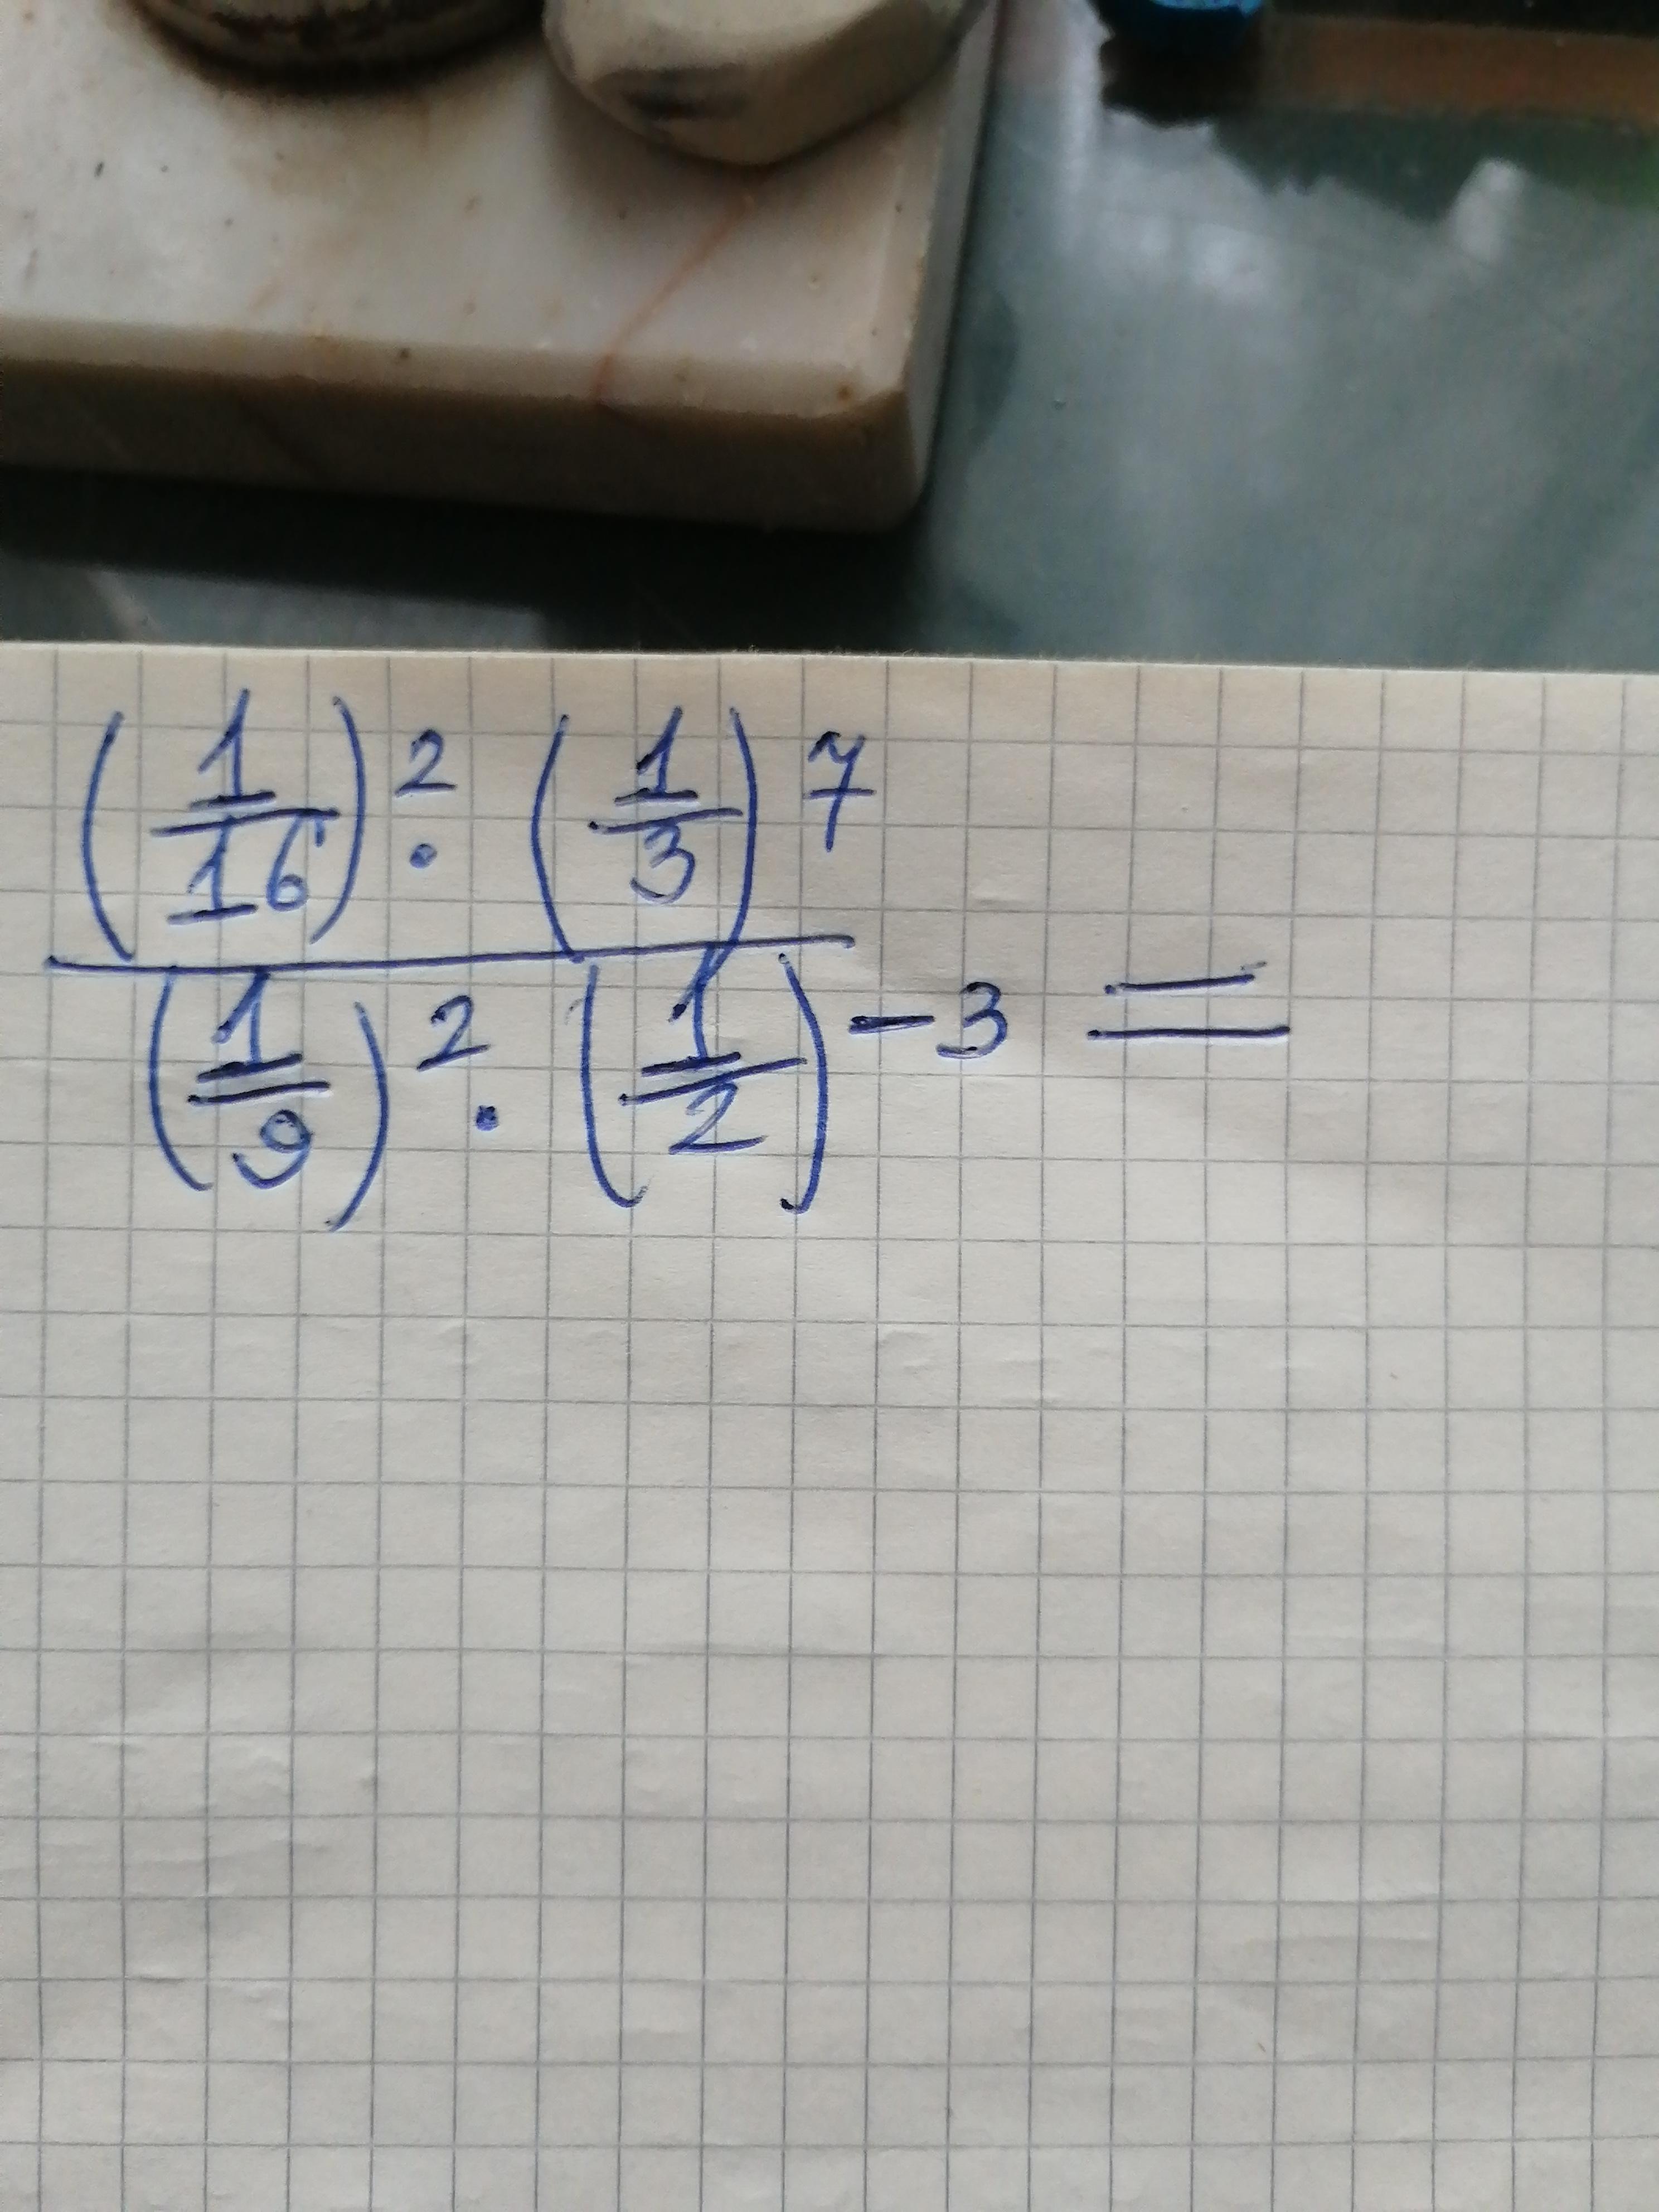 (1/16)² · (1/3)⁷
(1/9)² · (1/2)⁻³ =